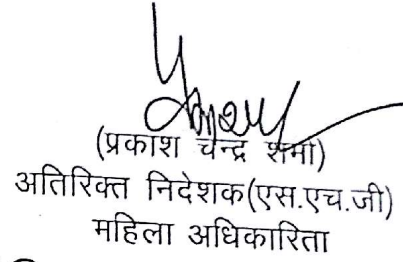 (प्रकाश चन्द्र शर्मा)
अतिरिक्त निदेशक(एस.एच.जी)
महिला अधिकारिता